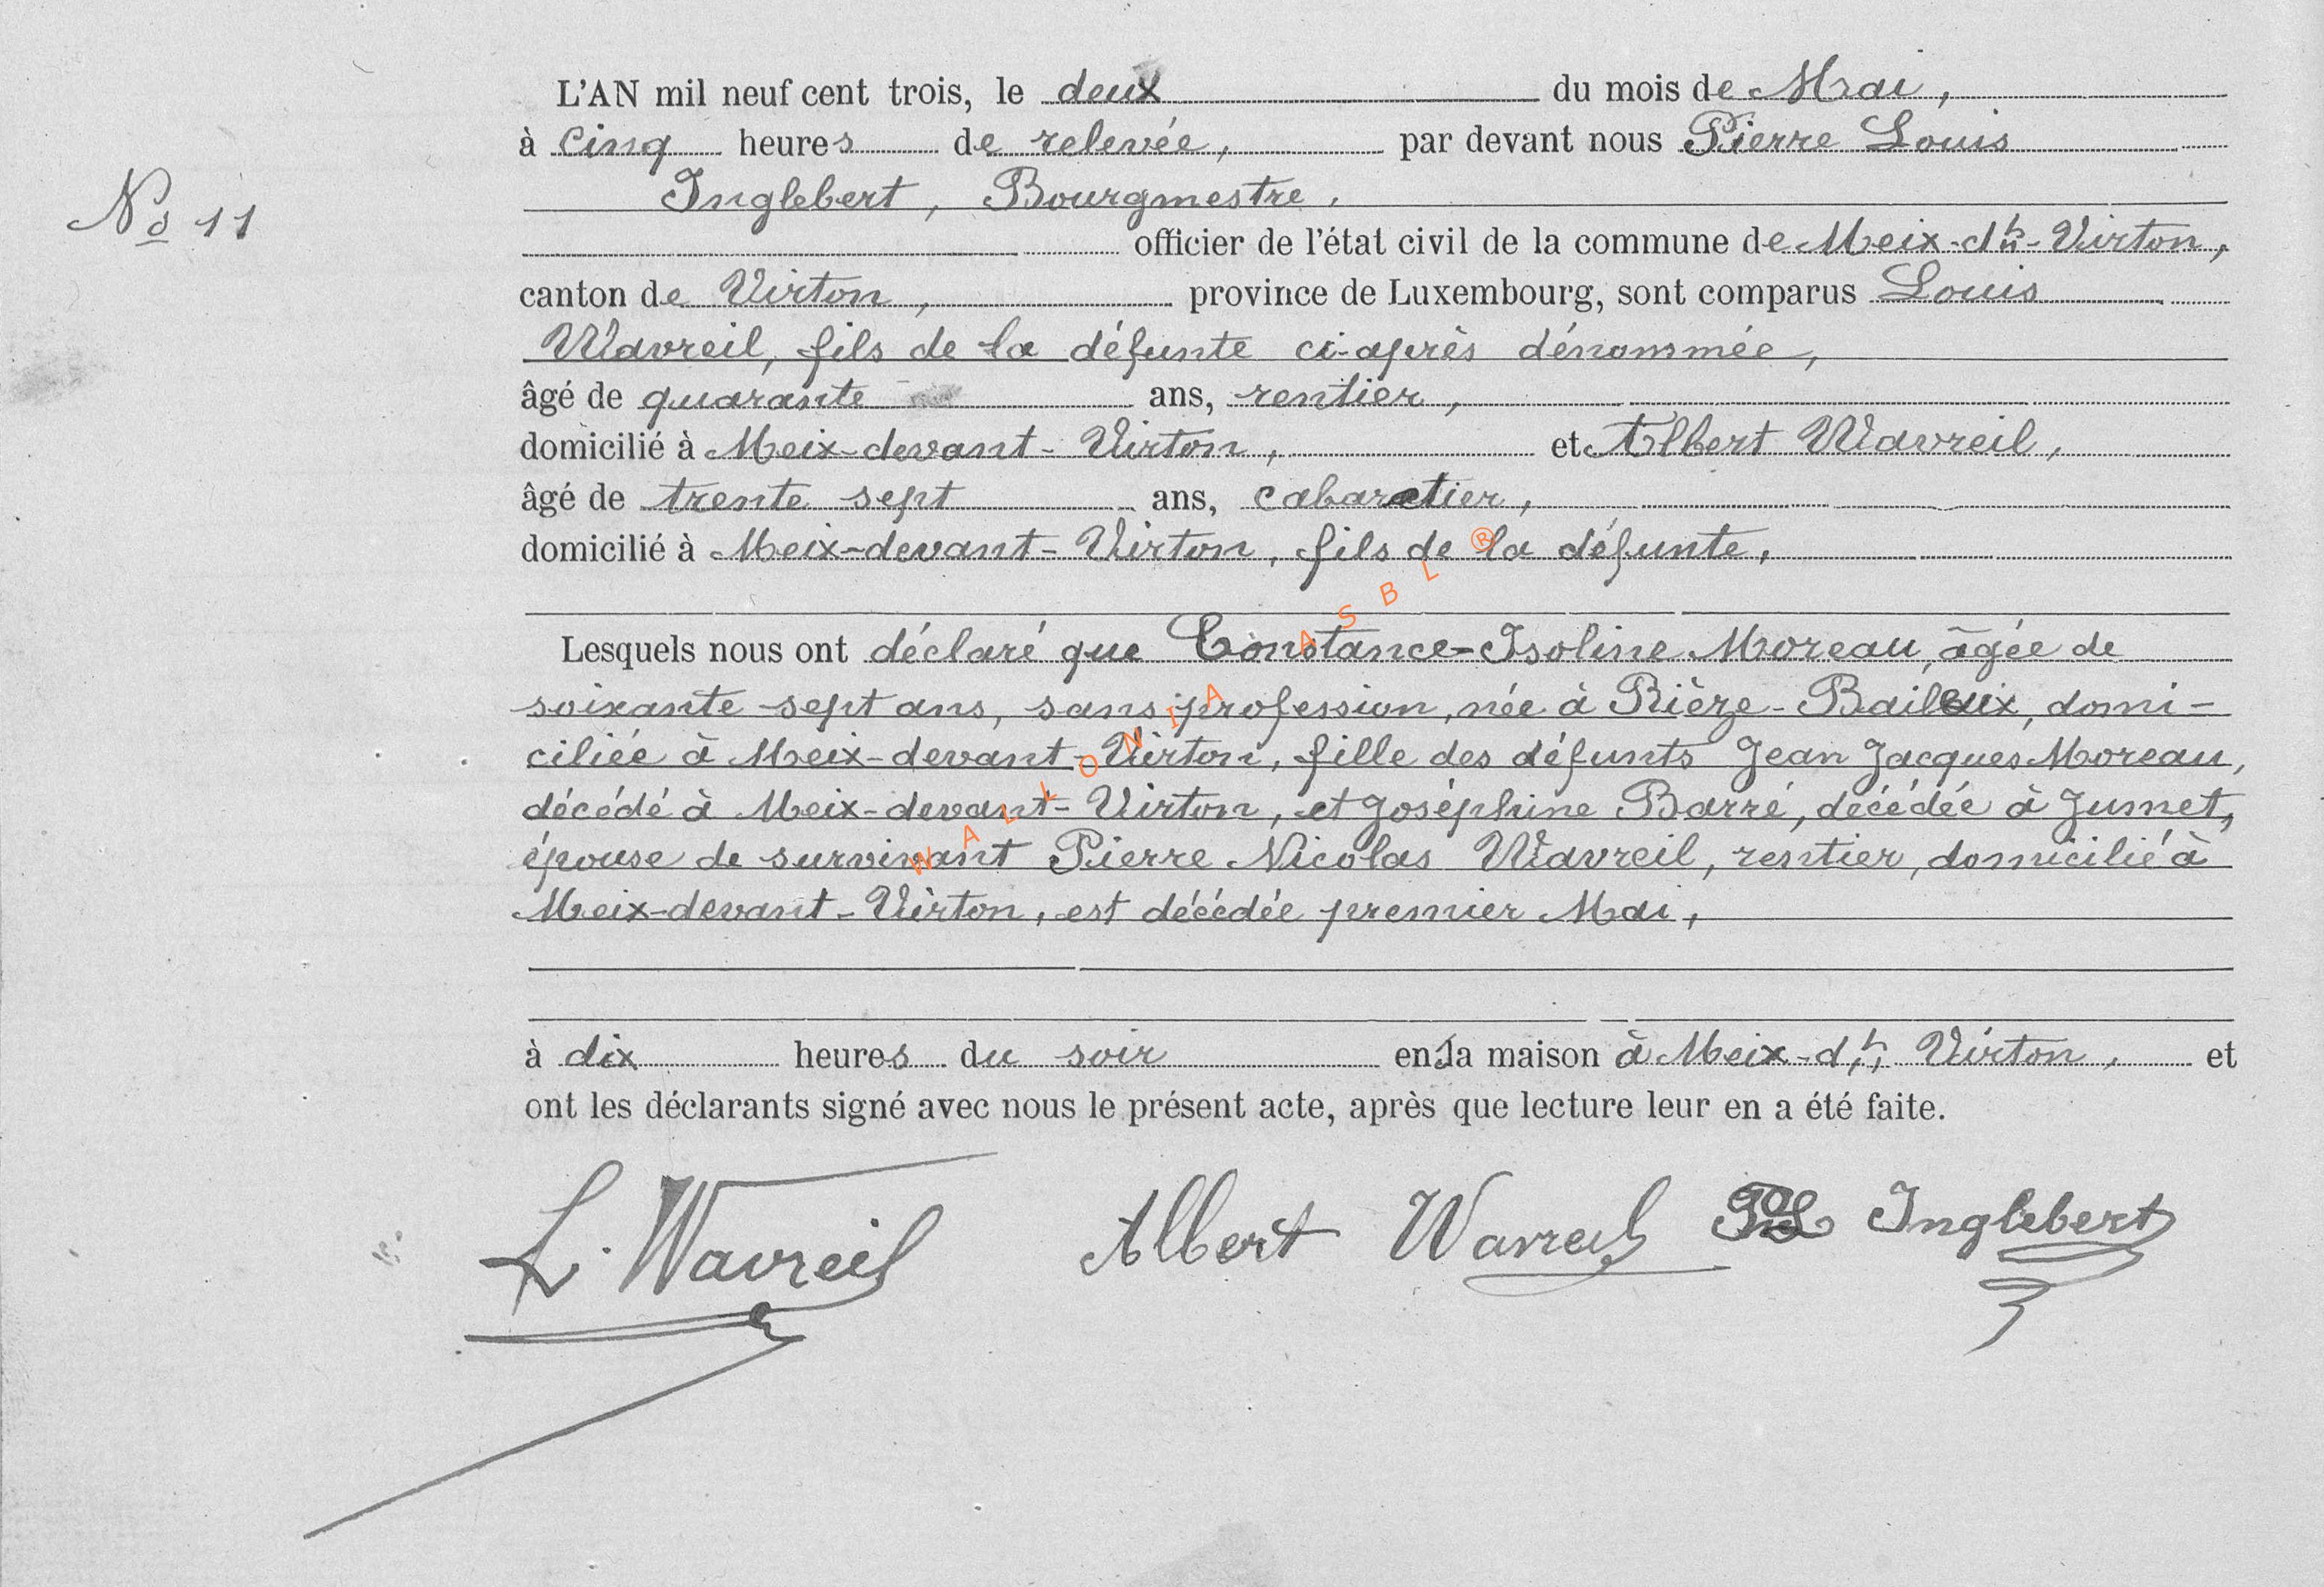 L'AN mil neuf cent trois, le deux du mois de Mai,
à cinq heures de relevée, par devant nous Pierre Louis
Inglebert, Bourgmestre,
Nº 11
officier de l'état civil de la commune de Meix-dt-Virton,
canton de Virton, province de Luxembourg, sont comparus Louis
Wavreil, fils de la défunte ci-après dénommée,
âgé de quarante ans, rentier,
domicilié à Meix-devant-Virton, et Albert Wavreil,
âgé de trente sept ans, cabaretier,
domicilié à Meix-devant-Virton, fils de la défunte,
Lesquels nous ont déclaré que Constance-Isoline Moreau, âgée de
soixante-sept ans, sans profession, née à Rièze-Baileux, domi-
ciliée à Meix-devant-Virton, fille des défunts Jean Jacques Moreau,
décédé à Meix-devant-Virton, et Joséphine Barré, décédée à Jumet,
épouse de survivant Pierre Nicolas Wavreil, rentier, domicilié à
Meix-devant-Virton, est décédée premier Mai,
à dix heures du soir en sa maison à Meix-dt Virton, et
ont les déclarants signé avec nous le présent acte, après que lecture leur en a été faite.
L. Wavreil Albert Wavreil PL Inglebert
WALLONIA ASBL ®